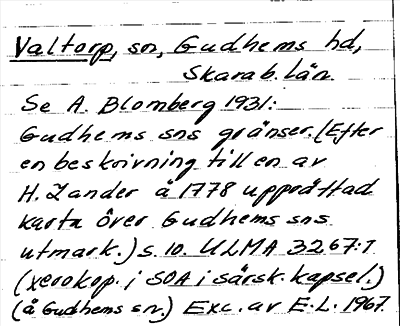 Valtorp, sn, Gudhems hd,
Skarab. län.
Se A. Blomberg 1931:
Gudhems sns gränser. (Efter
en beskrivning till en av
H. Zander å 1778 upprättad
karta över Gudhems sns
utmark.) s. 10. ULMA 3267:1
(xerokop. i SOA i särsk. kapsel.)
(å Gudhems sn.) Exc. av E.L. 1967.